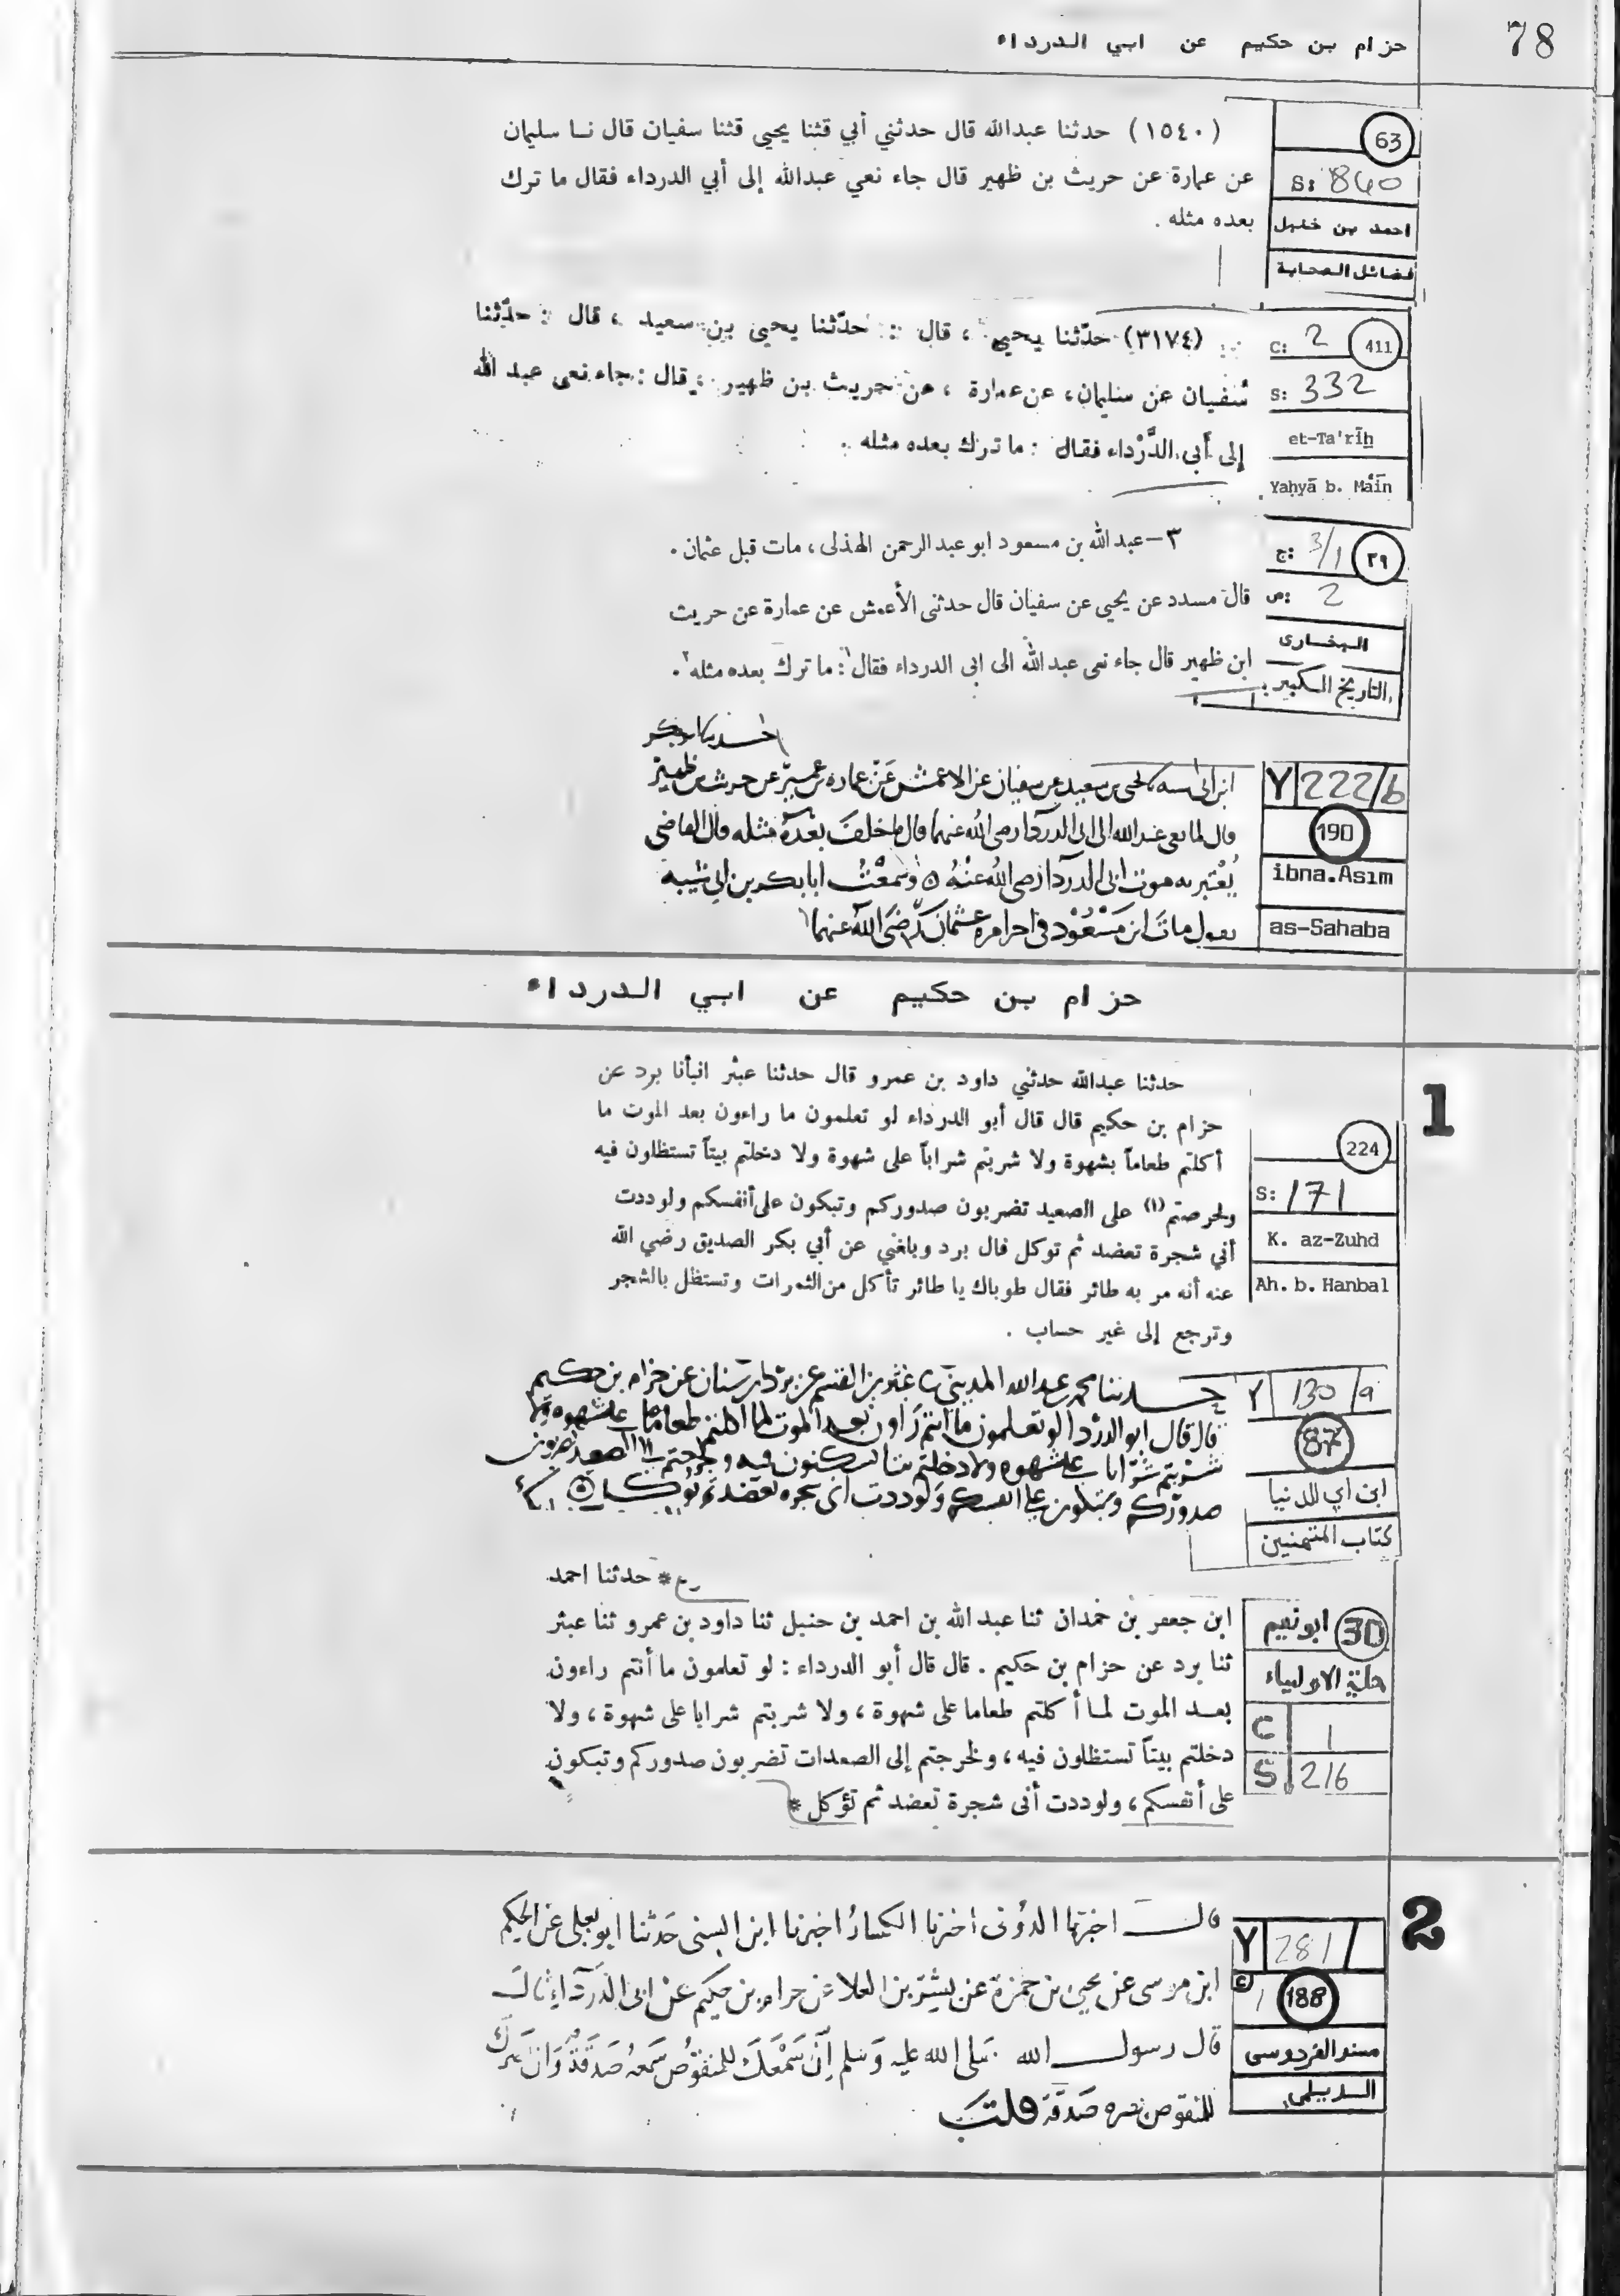 78
حزام بن حكيم عن ابي الدرداء
63
S: 840
احمد بن حنبل
فضائل الصحابة
(١٥٤٠) حدثنا عبدالله قال حدثني أبي قثنا يحيى قثنا سفيان قال نا سليمان
عن عمارة عن حريث بن ظهير قال جاء نعي عبدالله إلى أبي الدرداء فقال ما ترك
بعده مثله .
411
C: 2
S: 332
et-Ta'rīḫ
Yaḥyā b. Maīn
(٣١٧٤) حدّثنا يحيى ، قال : حدّثنا يحيى بن سعيد ، قال : حدّثنا
سُفيان عن سليمان، عن عمارة ، عن حريث بن ظهير ، قال : جاء نعى عبد الله
إلى أبى الدَّرْداء فقال : ما ترك بعده مثله .
٢٩
ج: 3/1
ص: 2
البخارى
التاريخ الكبير
٣ – عبد الله بن مسعود ابو عبد الرحمن الهذلى ، مات قبل عثمان .
قال مسدد عن يحيى عن سفيان قال حدثنى الأعمش عن عمارة عن حريث
ابن ظهير قال جاء نعى عبد الله الى ابى الدرداء فقال : ما ترك بعده مثله .
Y 222/b
190
ibna.Asım
as-Sahaba
ابن ابى سعيد عن سفيان عن الاعمش عن عماره بن عمير عن حريث بن ظهير
قال لما نعى عبد الله الى ابى الدرداء رضى الله عنهما قال ما خلف بعده مثله قال القاضى
يعتبر به موت ابى الدرداء رضى الله عنه ه وسمعت ابا بكر بن ابى شيبه
يقول مات ابن مسعود فى اخر امره عثمان رضى الله عنهما
حزام بن حكيم عن ابي الدرداء
1
224
S: 171
K. az-Zuhd
Ah. b. Hanbal
حدثنا عبدالله حدثني داود بن عمرو قال حدثنا عبثر انبأنا برد عن
حزام بن حكيم قال قال أبو الدرداء لو تعلمون ما راءون بعد الموت ما
أكلتم طعاماً بشهوة ولا شربتم شراباً على شهوة ولا دخلتم بيتاً تستظلون فيه
ولحرصتم (١) على الصعيد تضربون صدوركم وتبكون على أنفسكم ولوددت
أني شجرة تعضد ثم توكل قال برد وبلغني عن أبي بكر الصديق رضي الله
عنه أنه مر به طائر فقال طوباك يا طائر تأكل من الثمرات وتستظل بالشجر
وترجع إلى غير حساب .
Y 130/a
87
ابن ابي الدنيا
كتاب المتمنين
حدثنا محمد بن عبد الله المديني عبثر بن القسم عن برد بن سنان عن حزام بن حكيم
قال قال ابو الدرداء لو تعلمون ما انتم راون بعد الموت لما اكلتم طعاما على شهوه ولا
شربتم شرابا على شهوه ولا دخلتم بيتا تسكنون فيه ولخرجتم الى الصعد تضربون
صدوركم وتبكون على انفسكم ولوددت انى شجره تعضد ثم توكل
* حدثنا احمد
30
ابونعيم
حلية الاولياء
C 1
S 216
ابن جعفر بن حمدان ثنا عبد الله بن احمد بن حنبل ثنا داود بن عمرو ثنا عبثر
ثنا برد عن حزام بن حكيم . قال قال أبو الدرداء : لو تعلمون ما أنتم راءون
بعد الموت لما أكلتم طعاما على شهوة ، ولا شربتم شرابا على شهوة ، ولا
دخلتم بيتاً تستظلون فيه ، ولخرجتم إلى الصعدات تضربون صدوركم وتبكون
على أنفسكم ، ولوددت أنى شجرة تعضد ثم تؤكل *
2
Y 281/
1 188
مسند الفردوسى
الديلمى
قال اخبرنا الدونى اخبرنا الكسار اخبرنا ابن السنى حدثنا ابو يعلى عن الحكم
ابن موسى عن يحيى بن حمزة عن بشر بن العلا عن حرام بن حكيم عن ابى الدرداء قال
قال رسول الله صلى الله عليه وسلم إن سمعك للمنقوص سمعه صدقة وان
للمنقوص صدقة قلت